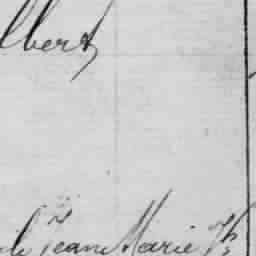 lbert
de Jean Marie